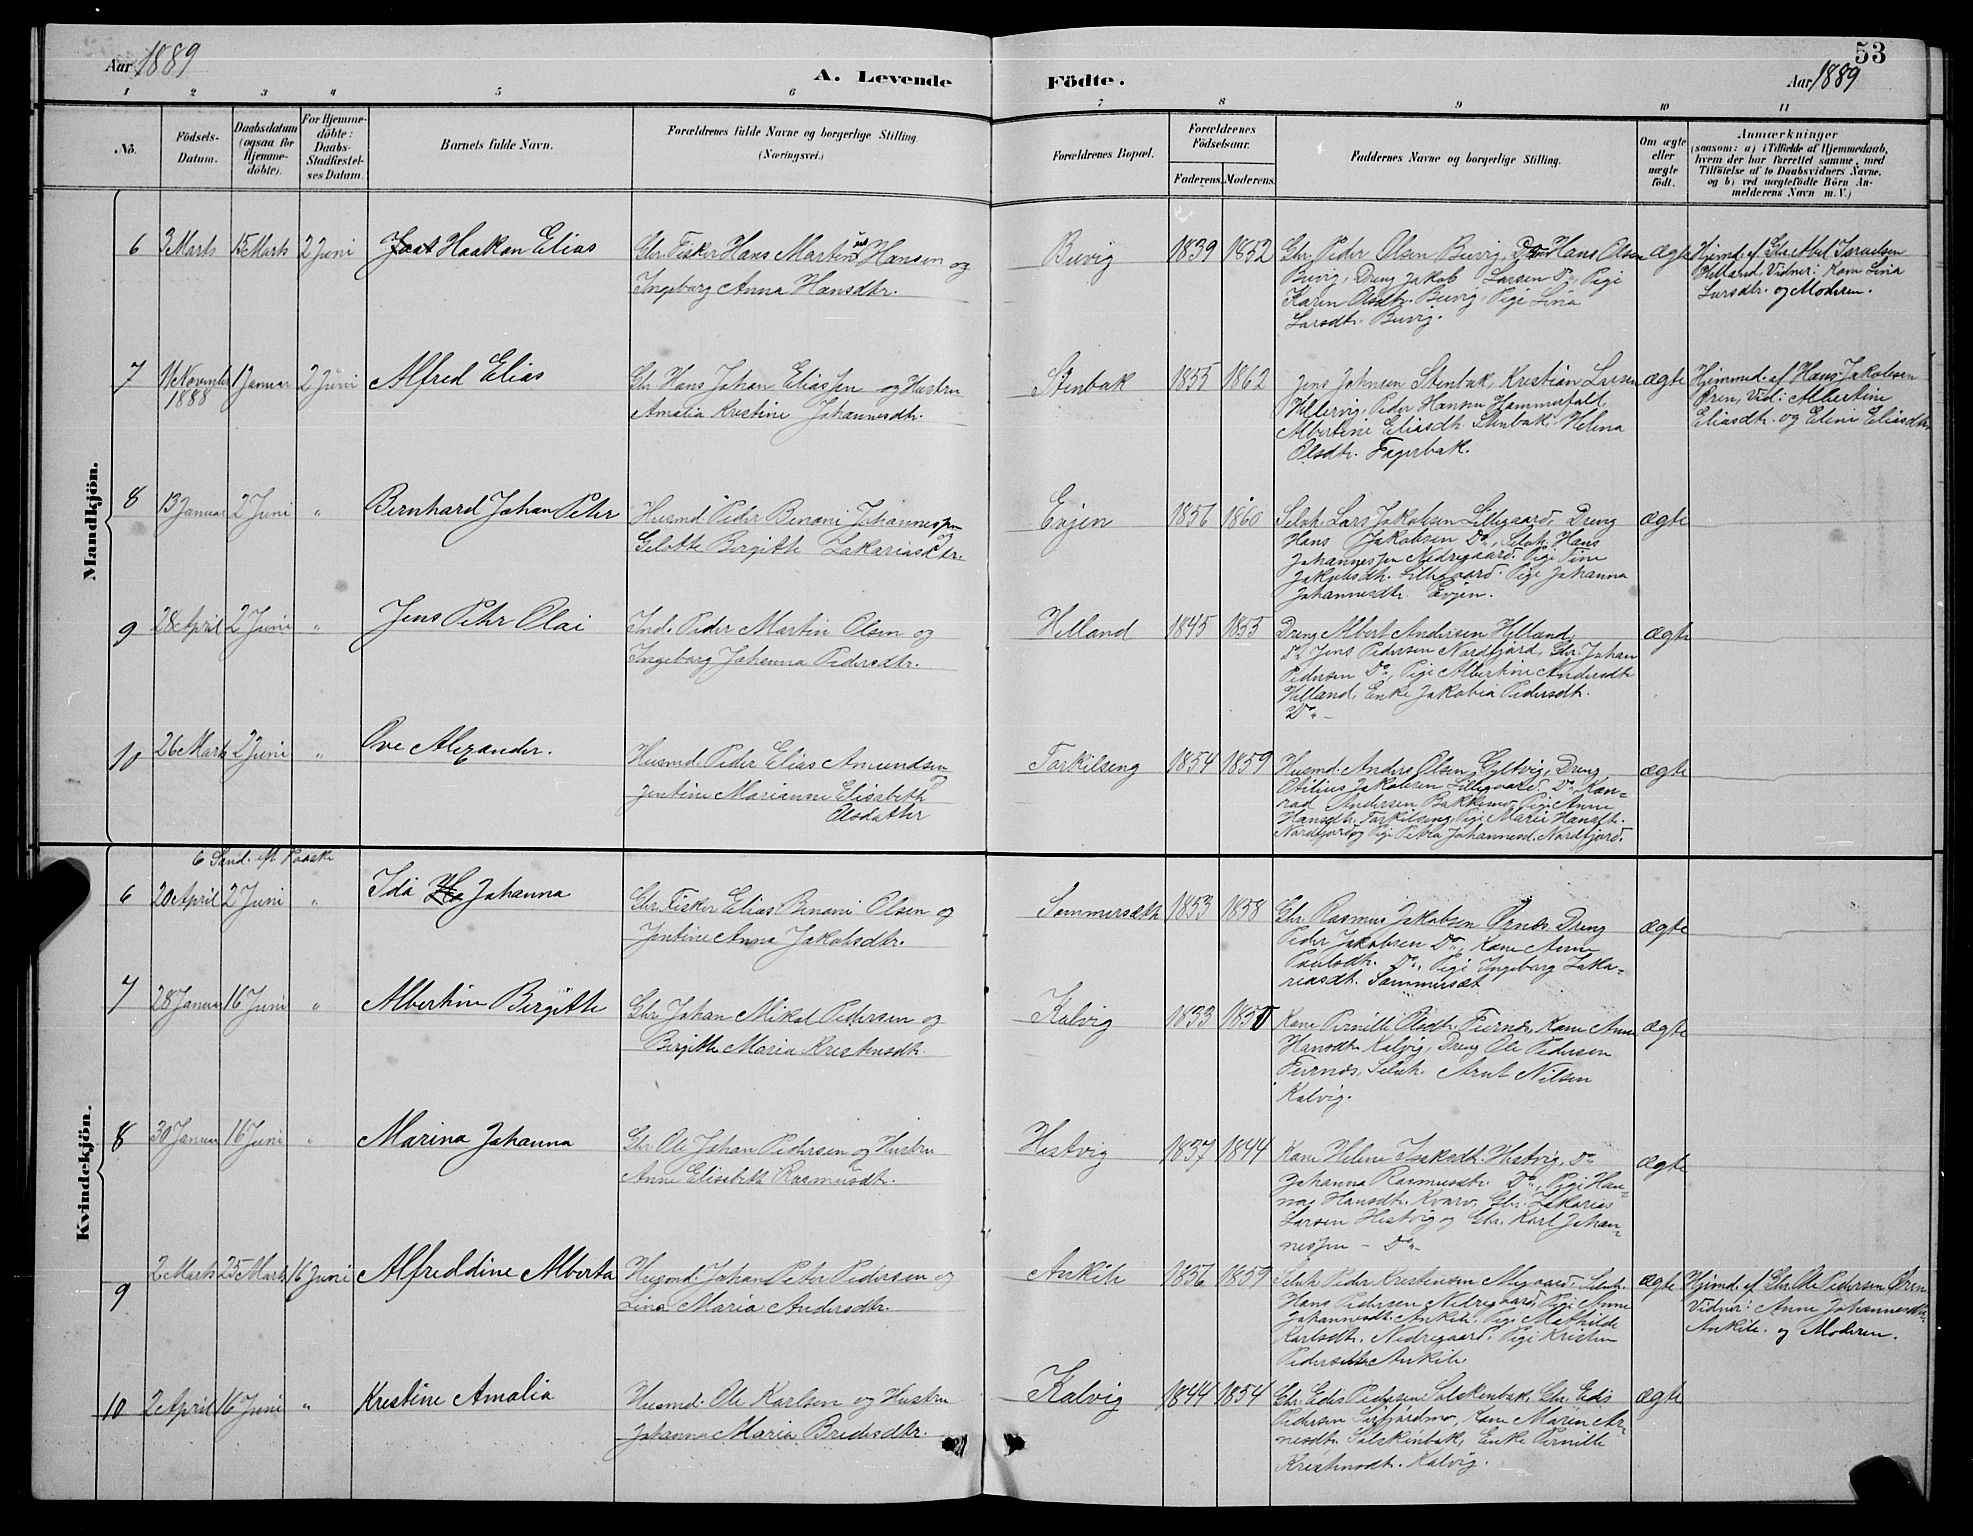 Aar 1889
A. Levende
Födte.
53
Aar 1889
1 2 3 4 5 6 7 8 9 10 11
No.
Födsels-
Datum.
Daabsdatum
(ogsaa for
Hjemme-
döbte).
For Hjemme-
döbte:
Daabs-
Stadfæstel-
ses Datum.
Barnets fulde Navn.
Forældrenes fulde Navne og borgerlige Stilling.
(Næringsvei.)
Forældrenes Bopæl.
Forældrenes
Födselsaar.
Faderens. Moderens.
Faddernes Navne og borgerlige Stilling.
Om ægte
eller
uægte
födt.
Anmærkninger
(saasom: a) i Tilfælde af Hjemmedaab,
hvem der har forrettet samme, med
Tilföielse af to Daabsvidners Navne.
og b) ved uægtefödte Börn An-
melderens Navn m. V.)
Mandkjön.
6 3 Marts 15 Marts 2 Juni Haakon Elias
Gbr. Fisker Hans Martinus Hansen og
Ingeborg Anna Hansdtr.
Buvig 1839 1852
Gbr. Peder Olsen Buvig, Hans Olsen
Buvig, Dreng Jakob Larsen Do, Pige
Karen Olsdtr. Buvig, Pige Lina
Larsdtr. Buvig.
ægte
Hjemd. af Gbr Abel Israelsen
Helland Vidner: Kone Lina
Larsdtr. og Moderen.
7 11 November 1 Januar 2 Juni Alfred Elias
1888
Gbr. Hans Johan Eliassen og Hustru
Amalia Kristine Johannesdtr.
Stenbak 1855 1862
Jens Johnsen Stenbak, Kristian Larsen
Peder Hansen Hammerfall,
Albertine Eliasdtr. Stenbak. Helena
Olsdtr. Fagerbak.
ægte
Hjemmed. af Hans Jakobsen
Øren, Vid: Albertine
Eliasdtr. og Elen Eliasdtr.
8 13 Januar 2 Juni " Bernhard Johan Peter
Husmd. Peder Benoni Johannessen
og
Gelotte Birgitte Zakariasdtr.
Evjen 1856 1860
Selvh. Lars Jakobsen Lillegaard, Dreng
Hans Jakobsen Do, Selvh. Hans
Johannessen Nedregaard. Pige Tine
Jakobsdtr. Lillegaard. Pige Johanna
Johannesdtr. Evjen.
ægte
9 28 April 2 Juni " Jens Peter Olai
Ind. Peder Martin Olsen og
Ingeborg Johanna Pedersdtr.
Helland 1845 1855
Dreng Albert Andersen Helland,
Do Jens Pedersen Nordfjord, Gbr. Johan
Pedersen Do, Pige Albertine Andersdtr
Helland, Enke Jakobia Pedersdtr.
Do -
ægte
10 26 Marts 2 Juni " Ove Alexander.
Husmd. Peder Elias Amundsen
og
Jentine Marianne Elisabeth
Olsdatter
Torkilseng 1854 1859
Husmd. Anders Olsen Gyltvig, Dreng
Otilius Jakobsen Lillegaard Do Kon-
rad Andersen Bakkemo, Pige Anne
Hansdtr. Torkilseng, Pige Marie Hansdtr.
Nordfjord og Pige Petra Johannesd. Nordfjord.
ægte
Kvindekjön.
6 Sönd. eft Paaske
6 20 April 2 Juni " Ida Johanna
Gbr. Fisker Elias Benoni Olsen og
Jentine Anna Jakobsdtr.
Sommersæth 1853 1858
Gbr. Rasmus Jakobsen Ørnes, Dreng
Peder Jakobsen Do, Kone Anne
Paulsdtr. Do, Pige Ingeborg Zaka-
riasdtr. Sommersæt
ægte
7 28 Januar 16 Juni " Albertine Birgitte
Gbr Johan Mikal Pedersen og
Birgitte Maria Kristensdtr.
Kalvig 1833 1850
Kone Pernille Olsdtr. Furnes, Kone Anne
Hansdtr. Kalvig, Dreng Ole Pedersen
Furnes, Selvh. Arnt Nilsen
Kalvig.
ægte
8 30 Januar 16 Juni " Marina Johanna
Gbr Ole Johan Pedersen og Hustru
Anne Elisabeth Rasmusdtr.
Hestvig 1837 1844
Kone Helene Isaksdtr. Hestvig, Do
Johanna Rasmusdtr. Do, Pige Han-
na Hansdtr. Kvarv, Gbr. Zakarias
Larsen Hestvig og Gbr. Karl Johan-
nessen - Do -
ægte
9 2 Marts 25 Marts 16 Juni Alfreddine Alberta
Husmd. Johan Peter Pedersen og
Lina Maria Andersdtr.
Ankile 1836 1859
Selvh. Peder Kristensen Selvh.
Hans Pedersen Nedregaard, Pige Anne
Johannesdtr. Ankile. Pige Mathilde
Karlsdtr. Nedregaard. Pige Kristine
Pedersdtr. Ankile.
ægte
Hjemd. af Gbr. Ole Pedersen Øren
Vidner: Anne Johannesdtr.
Ankile. og Moderen.
10 2 April 16 Juni " Kristine Amalia
Husmd. Ole Karlsen og Hustru
Johanna Maria Bredesdtr.
Kalvig 1844 1854
Gbr. Edis Pedersen Solskinbak, Gbr. Edis
Pedersen Sörfjordmo, Kone Maren Ar-
nesdtr. Solskinbak, Enke Pernille
Kristensdtr. Kalvig.
ægte